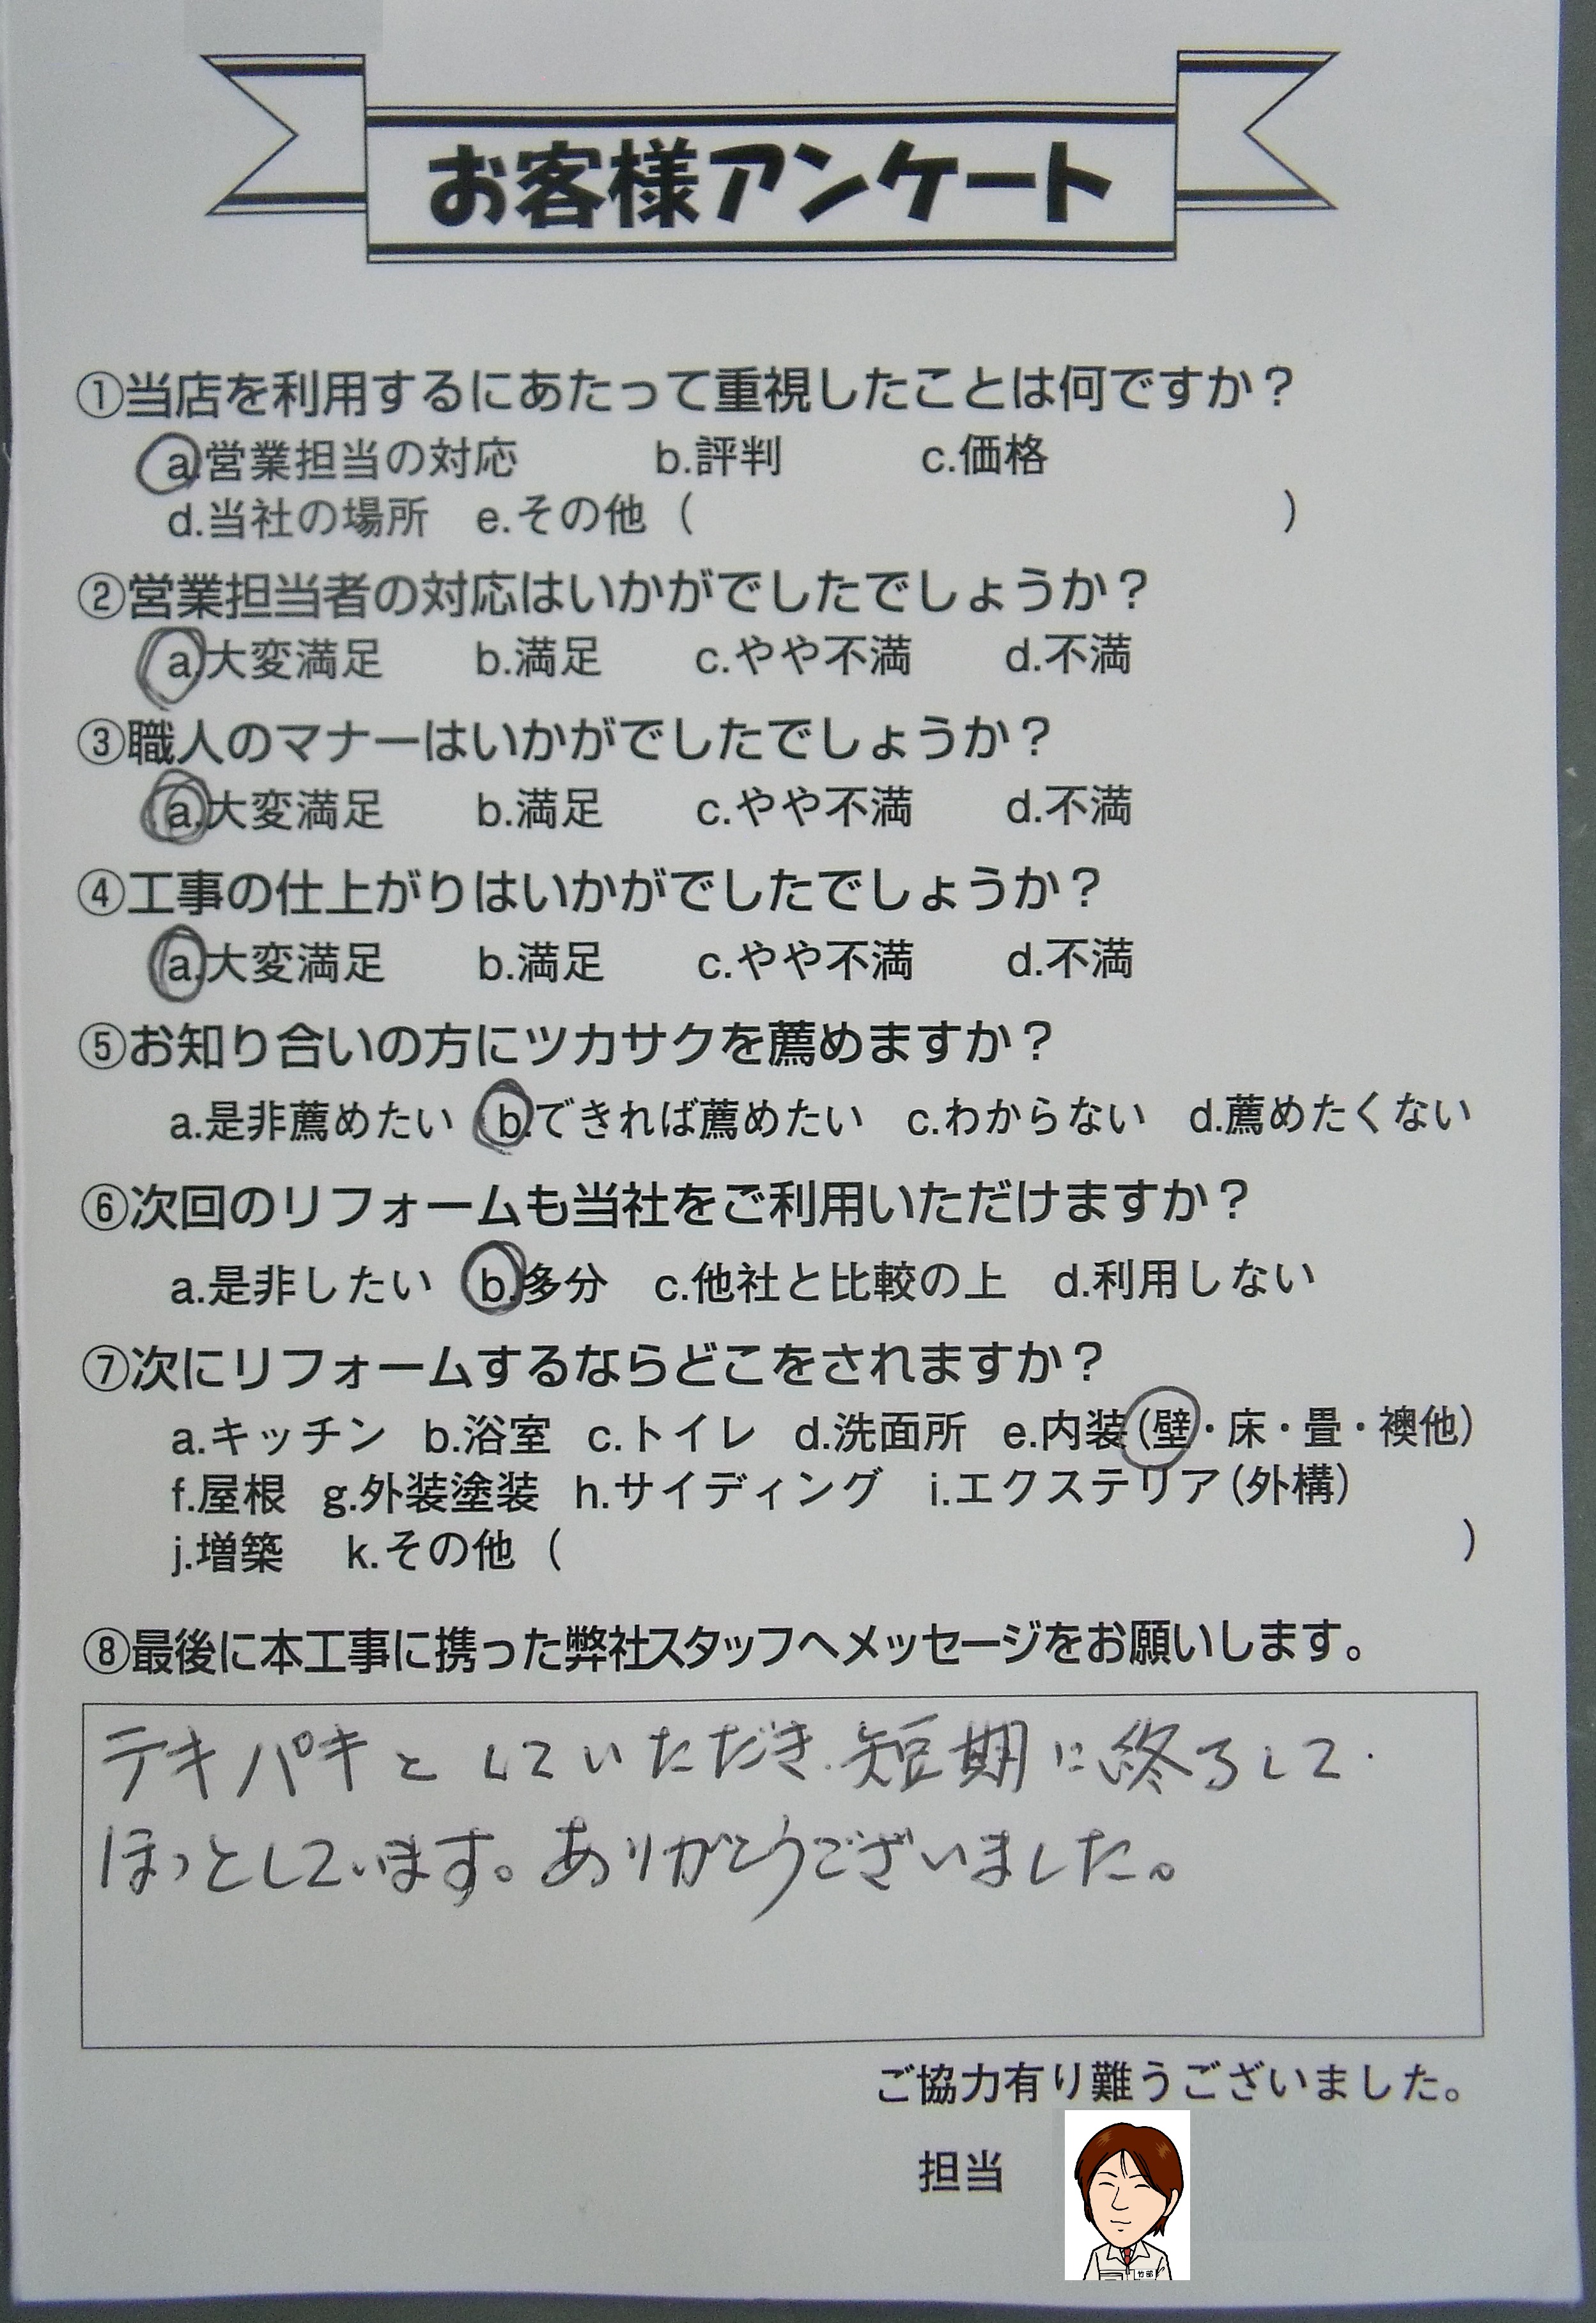 お客様アンケート
①当店を利用するにあたって重視したことは何ですか？
a.営業担当の対応 b.評判 c.価格
d.当社の場所 e.その他（ ）
②営業担当者の対応はいかがでしたでしょうか？
a.大変満足 b.満足 c.やや不満 d.不満
③職人のマナーはいかがでしたでしょうか？
a.大変満足 b.満足 c.やや不満 d.不満
④工事の仕上がりはいかがでしたでしょうか？
a.大変満足 b.満足 c.やや不満 d.不満
⑤お知り合いの方にツカサクを薦めますか？
a.是非薦めたい b.できれば薦めたい c.わからない d.薦めたくない
⑥次回のリフォームも当社をご利用いただけますか？
a.是非したい b.多分 c.他社と比較の上 d.利用しない
⑦次にリフォームするならどこをされますか？
a.キッチン b.浴室 c.トイレ d.洗面所 e.内装（壁・床・畳・襖他）
f.屋根 g.外装塗装 h.サイディング i.エクステリア（外構）
j.増築 k.その他（ ）
⑧最後に本工事に携った弊社スタッフへメッセージをお願いします。
テキパキとしていただき、短期に終了して
ほっとしています。ありがとうございました。
ご協力有り難うございました。
担当